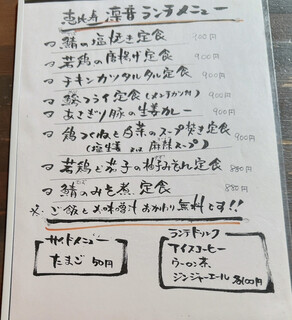 恵比寿 凛音 ランチメニュー
鯖の塩焼き定食 900円
若鶏の唐揚げ定食 900円
チキンカツタルタル定食 900円
鯵フライ定食 (メンチカツ付) 900円
あさぎり豚の生姜カレー 900円
鶏つくねと白菜のスープ炊き定食 900円
(塩生姜 又は 麻辣スープ)
若鶏と茄子の柚みそれ定食 880円
鯖のみそ煮定食 880円
※ご飯とお味噌汁おかわり無料です!!
サイドメニュー
たまご 50円
ランチドリンク
アイスコーヒー
ウーロン茶
ジンジャーエール 各100円